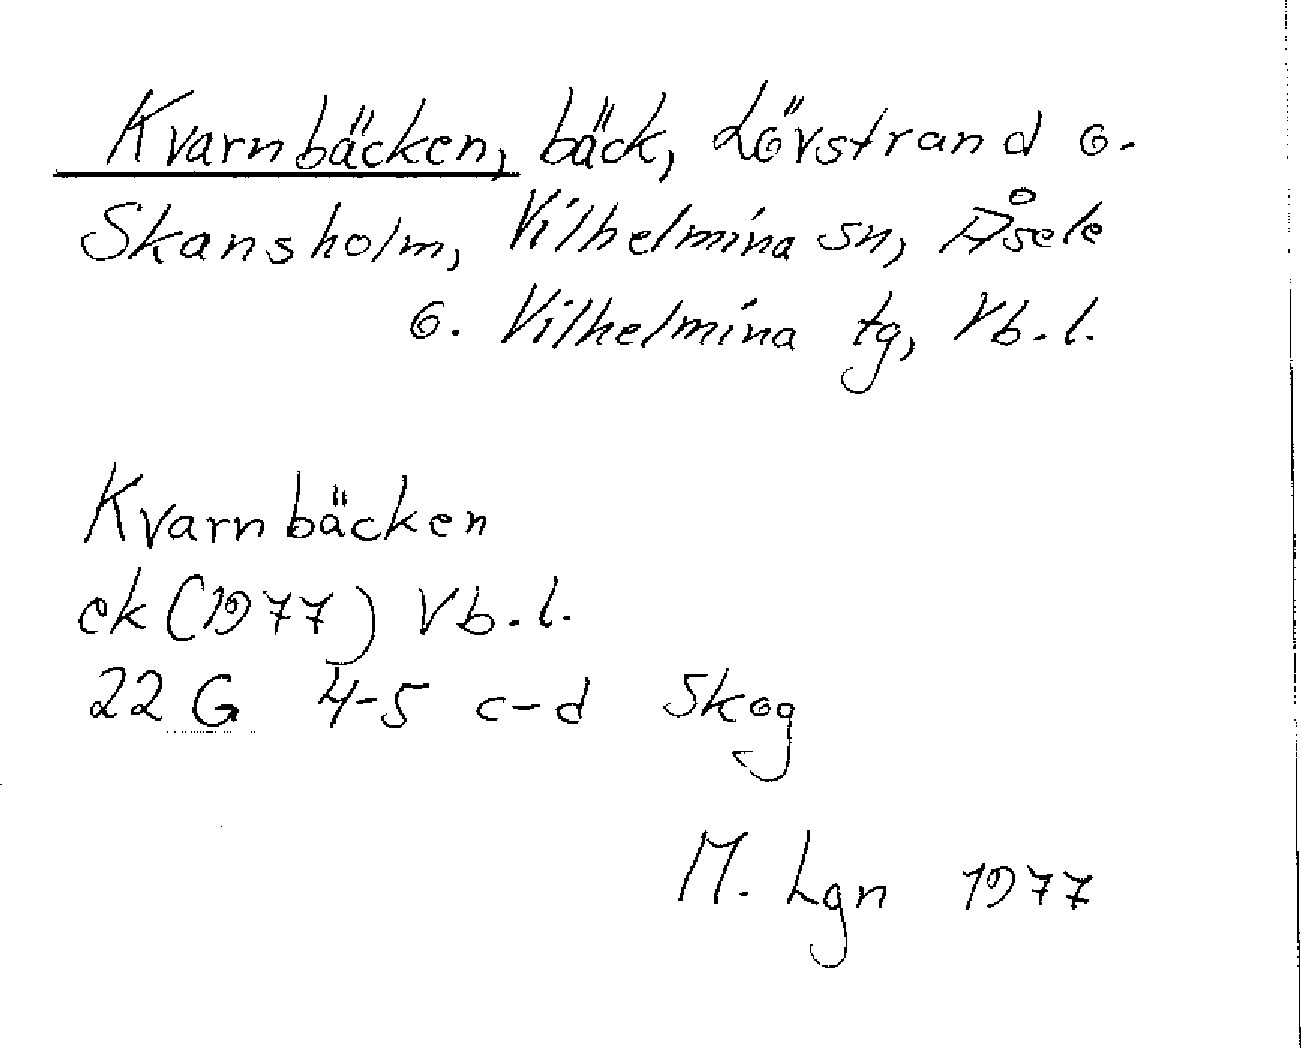 Kvarnbäcken, bäck, Lövstrand o.
Skansholm, Vilhelmina sn, Åsele
o. Vilhelmina tg, Vb.l.
Kvarnbäcken
ek (1977) Vb.l.
22 G 4-5 c-d Skog
M. Lgn 1977